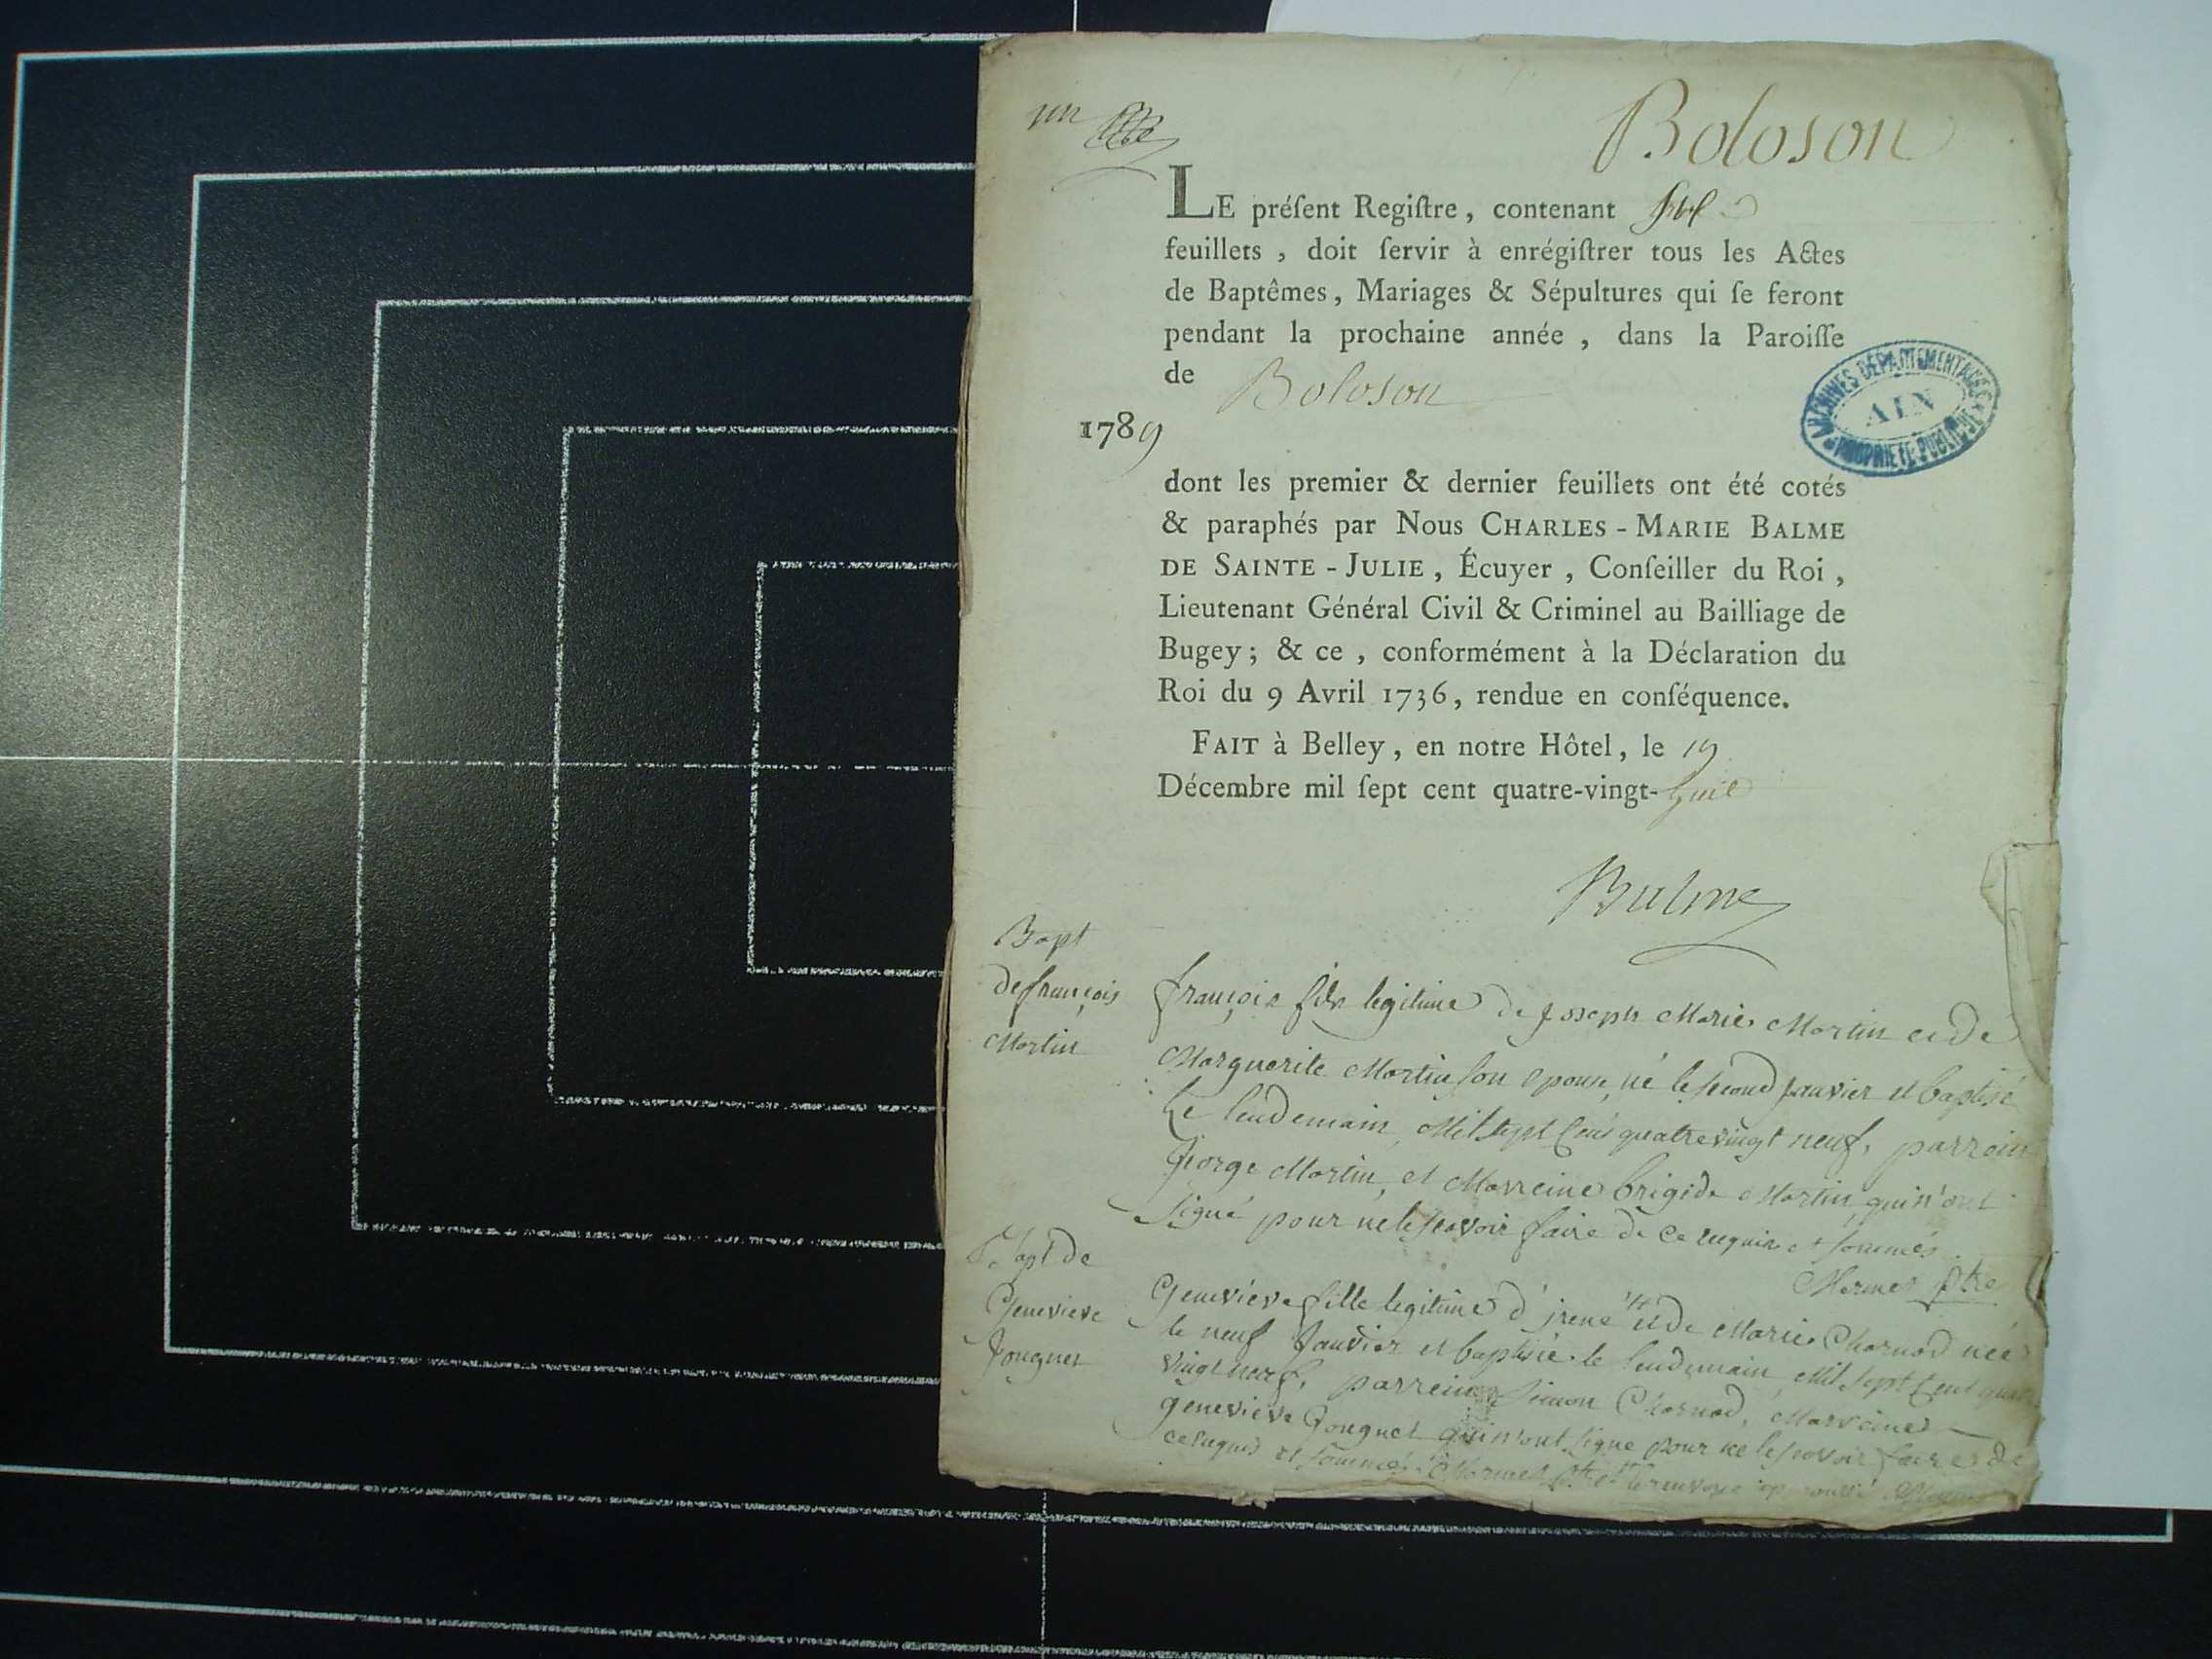 un
Boloson
LE préſent Regiſtre, contenant
feuillets, doit ſervir à enrégiſtrer tous les Actes
de Baptêmes, Mariages & Sépultures qui ſe feront
pendant la prochaine année, dans la Paroiſſe
de Boloson
ARCHIVES DÉPARTEMENTALES
AIN
PROPRIÉTÉ PUBLIQUE
1789
dont les premier & dernier feuillets ont été cotés
& paraphés par Nous CHARLES-MARIE BALME
DE SAINTE-JULIE, Écuyer, Conſeiller du Roi,
Lieutenant Général Civil & Criminel au Bailliage de
Bugey; & ce, conformément à la Déclaration du
Roi du 9 Avril 1736, rendue en conſéquence.
FAIT à Belley, en notre Hôtel, le 19
Décembre mil ſept cent quatre-vingt-huit
Balme
Bapt
de françois
Martin
françois fils legitime de Joseph Marie Martin et de
Marguerite Martin son epouse, né le second janvier et baptisé
le lendemain, Mil sept cens quatre vingt neuf, parrain
George Martin, et Marreine brigide Martin qui n'ont
signé pour ne le scavoir faire de ce requis et sommés
Mermet ptre
Bapt de
Genevieve
Jougnet
Genevieve fille legitime d'irené et de Marie Charnod née
le neuf Janvier et baptisée le lendemain, Mil sept cent quatre
vingt neuf, parrein Simon Charnod, Marreine
genevieve Gougnet qui n'ont signé pour ne le scavoir faire de
ce requis et sommés Mermet ptre